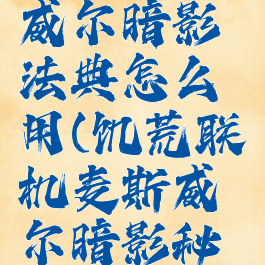 威尔暗影
法典怎么
用(饥荒联
机麦斯威
尔暗影秘